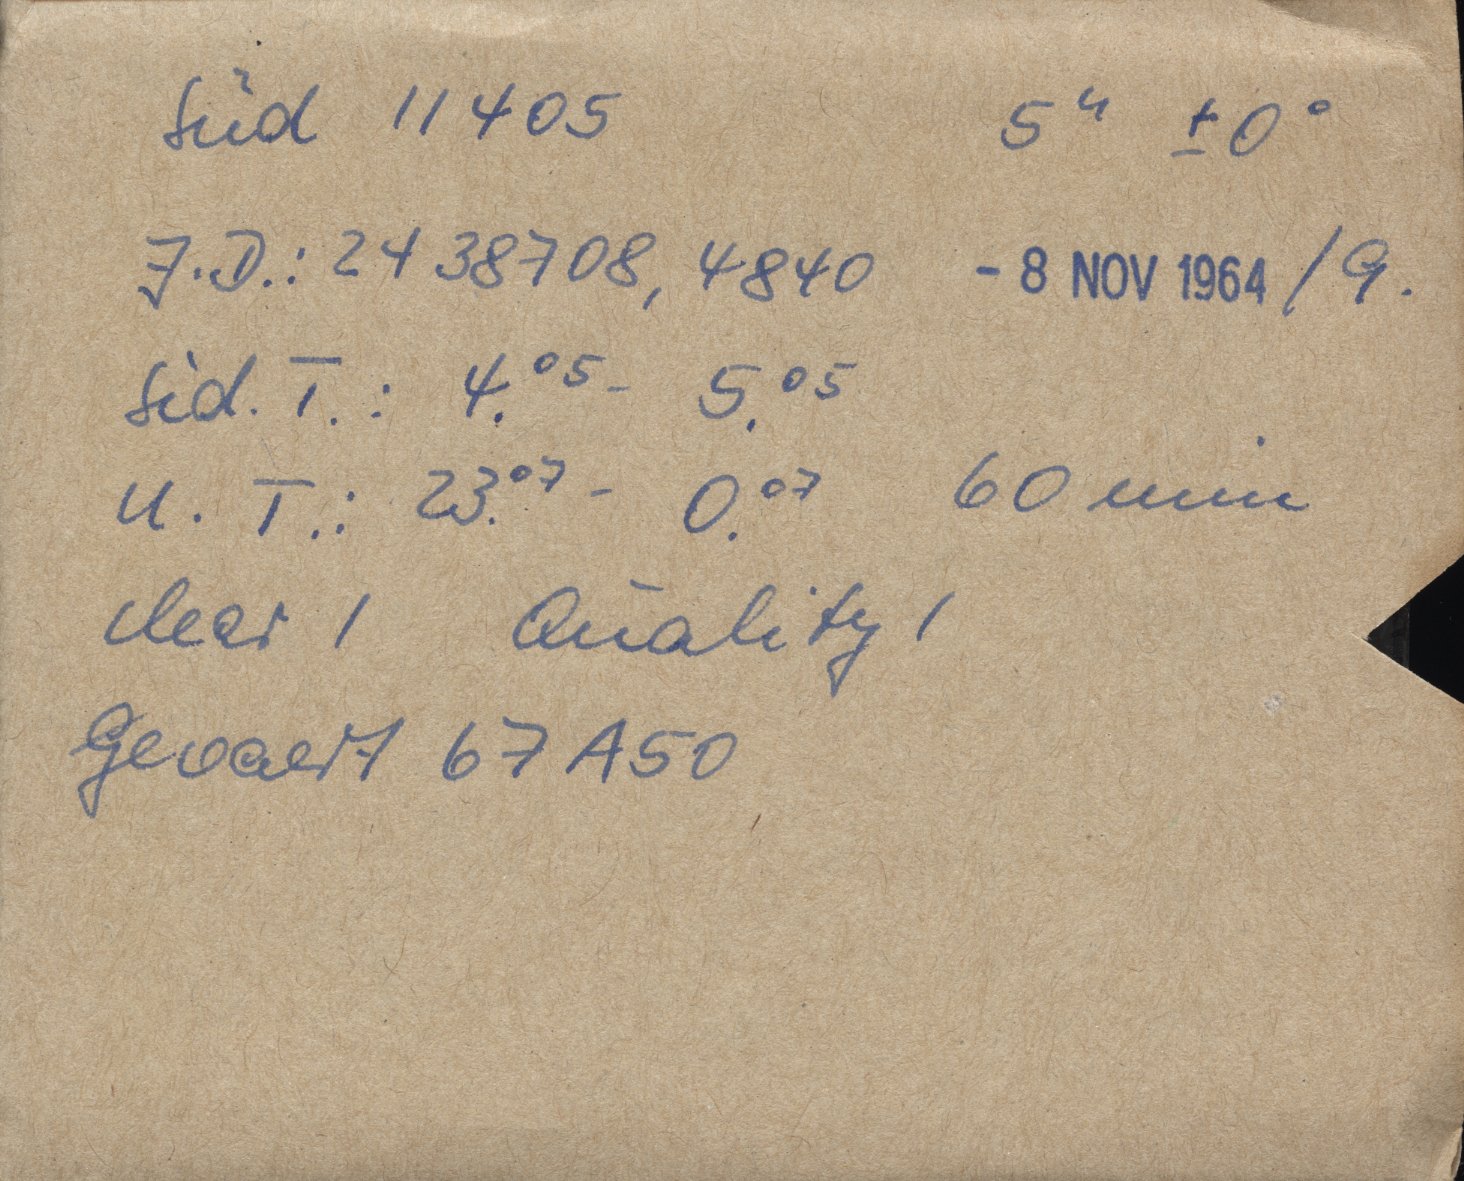 Süd 11405 5ʰ ±0°
J.D.: 2438708,4840 - 8 NOV 1964 / 9.
Sid. T.: 4.⁰⁵ - 5.⁰⁵
U. T.: 23.⁰⁷ - 0.⁰⁷ 60 min
clear 1 Quality 1
Gevaert 67 A50